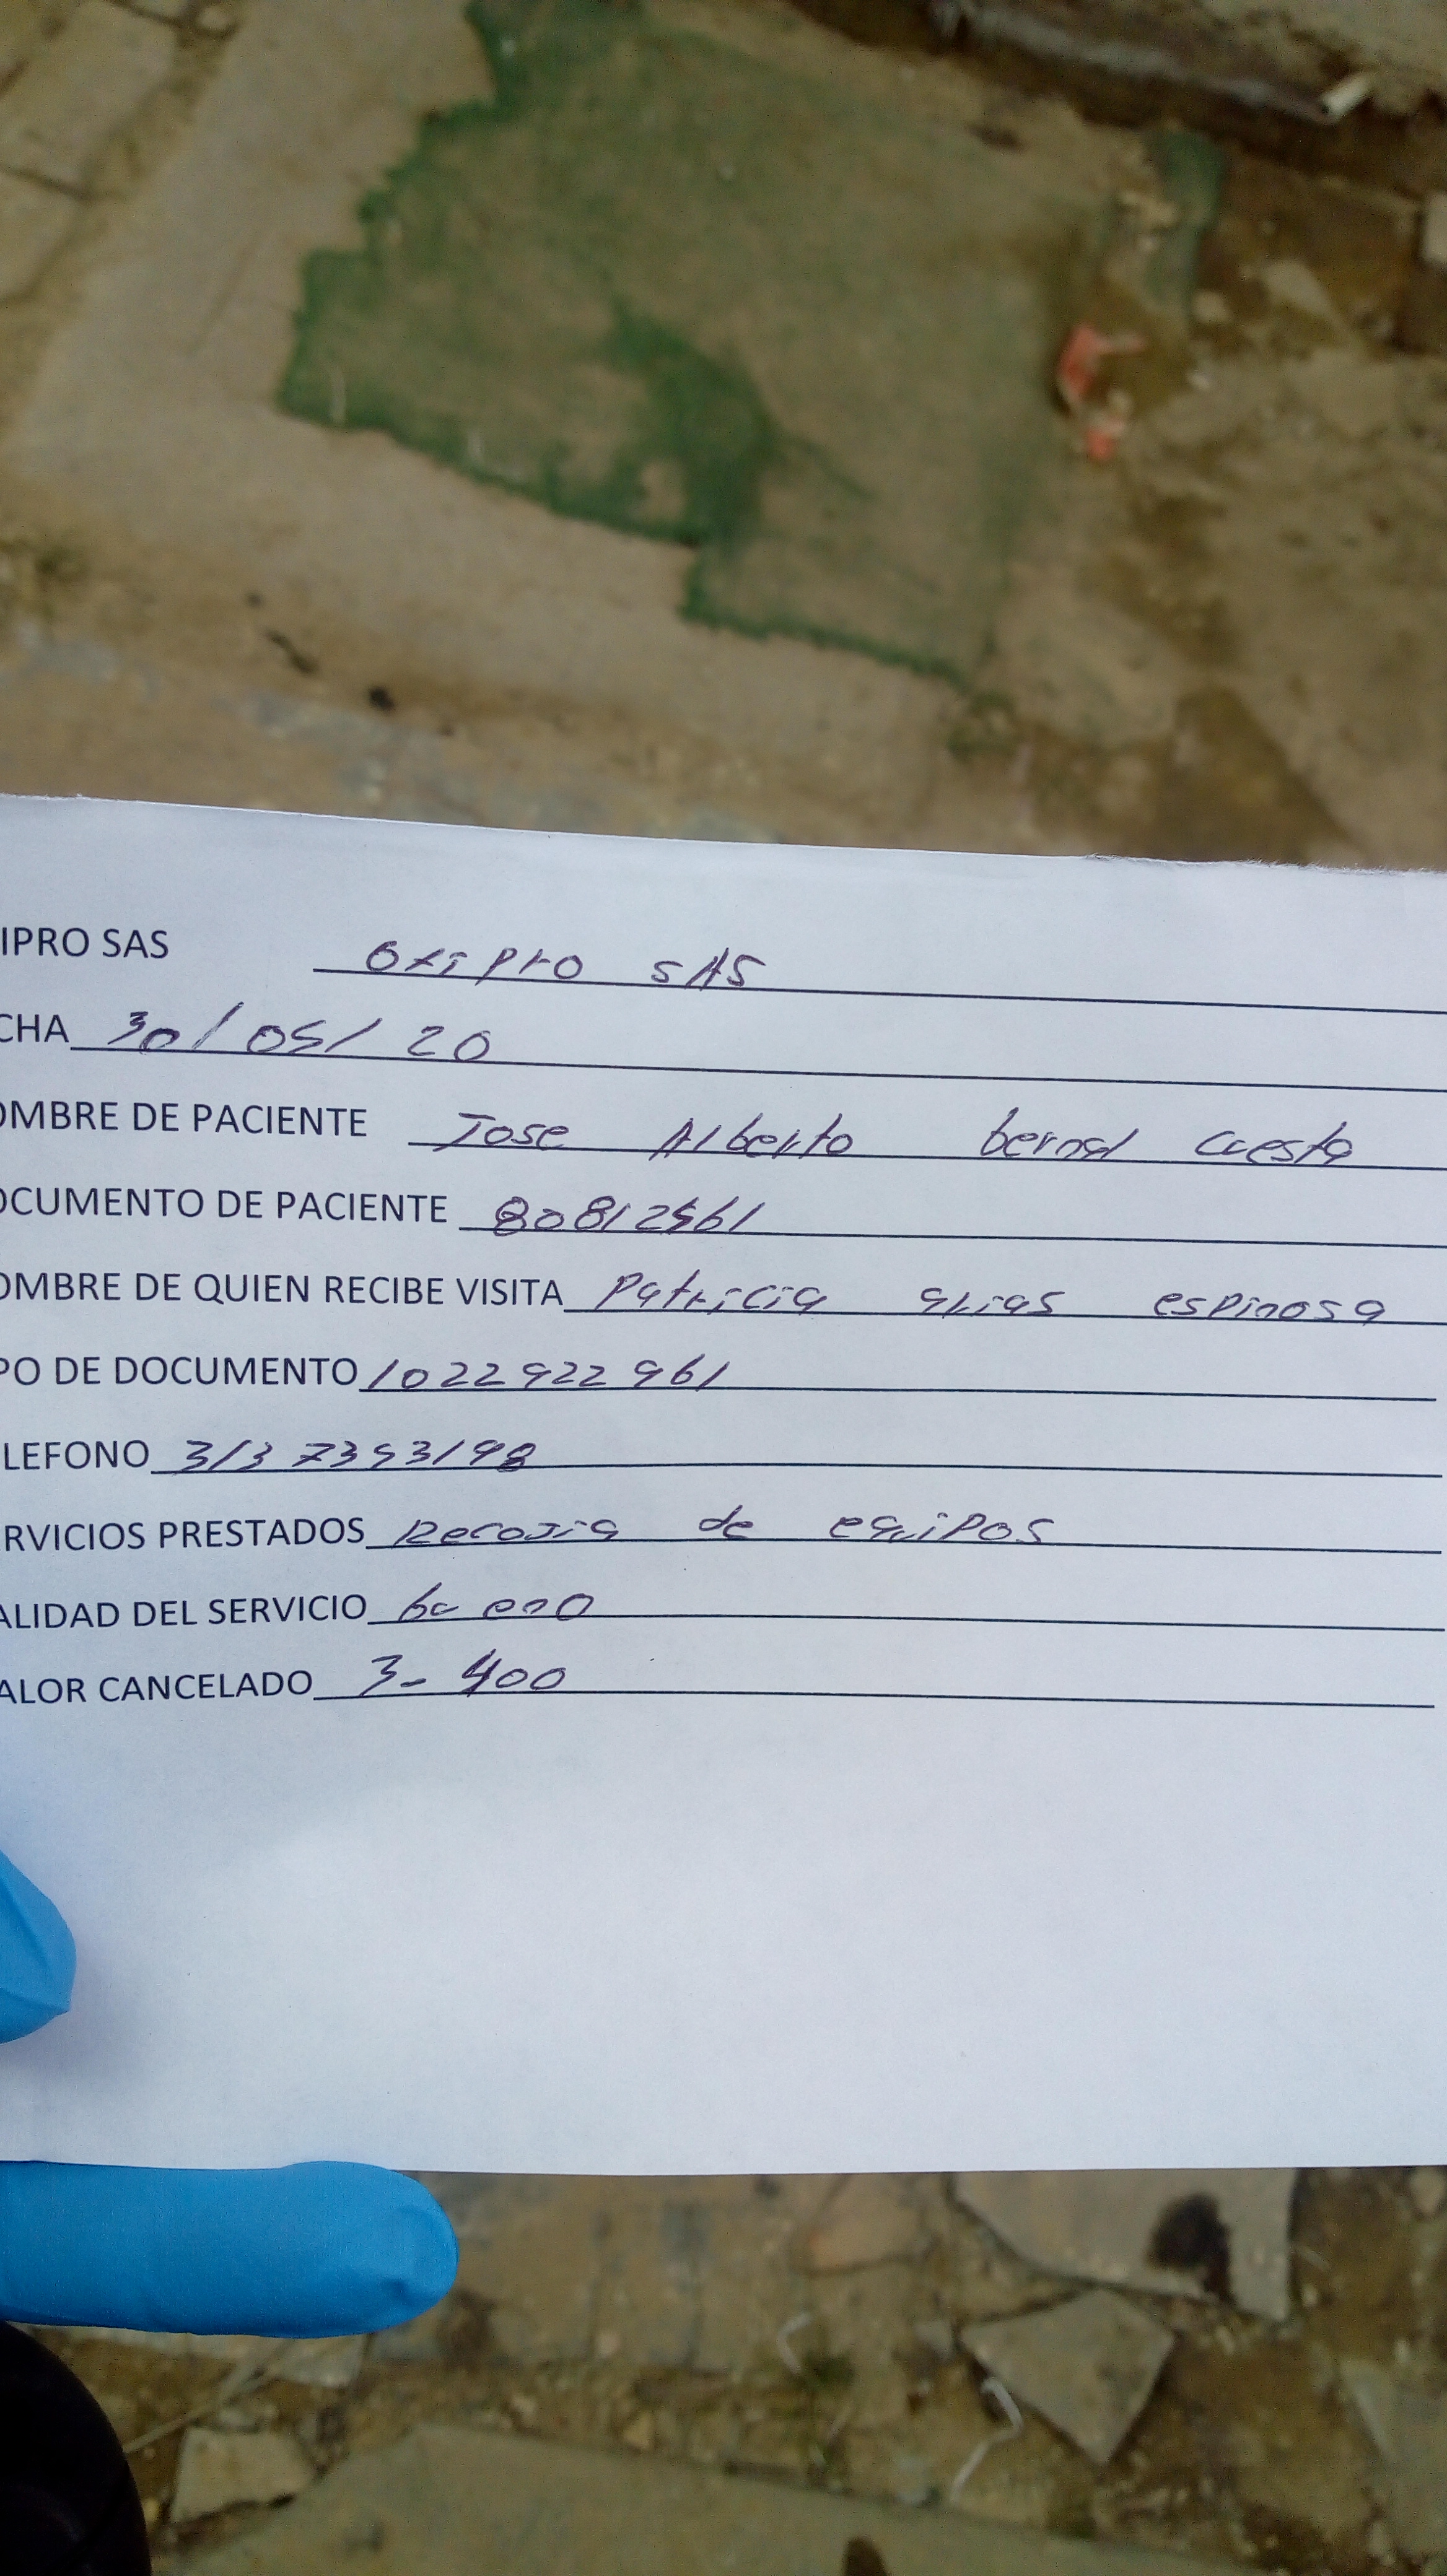 IPRO SAS Oxipro SAS
CHA 30/05/20
OMBRE DE PACIENTE Jose Alberto bernal Cuesta
OCUMENTO DE PACIENTE 80812561
OMBRE DE QUIEN RECIBE VISITA Patricia arias espinosa
PO DE DOCUMENTO 1022922961
LEFONO 313 7353198
RVICIOS PRESTADOS Recojia de equipos
ALIDAD DEL SERVICIO
ALOR CANCELADO 3- 400